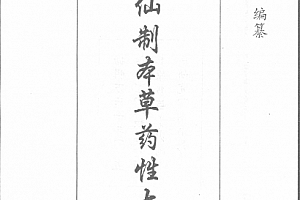 编纂
仙制本草药性